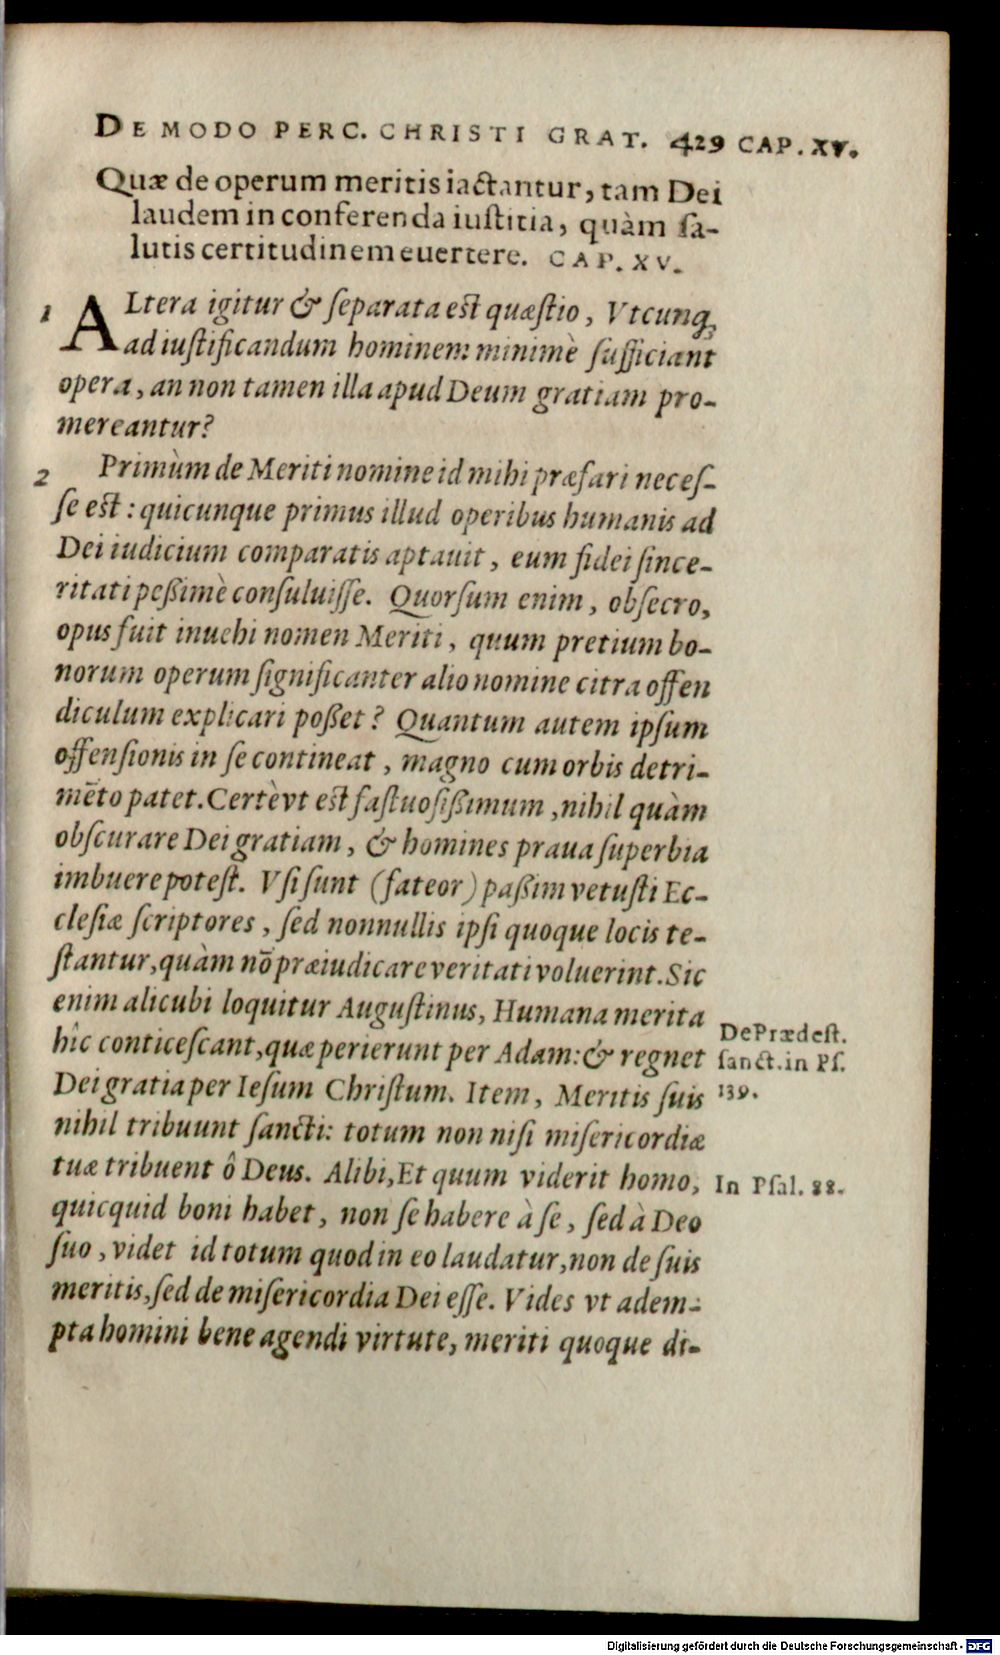 DE MODO PERC. CHRISTI GRAT. 429 CAP. XV.
Quæ de operum meritis iactantur, tam Dei
laudem in conferenda iustitia, quàm sa-
lutis certitudinem euertere. CAP. XV.
1 ALtera igitur & separata est quæstio, Vtcunq;
ad iustificandum hominem minimè sufficiant
opera, an non tamen illa apud Deum gratiam pro-
mereantur?
2 Primùm de Meriti nomine id mihi præfari neces-
se est: quicunque primus illud operibus humanis ad
Dei iudicium comparatis aptauit, eum fidei since-
ritati peßimè consuluisse. Quorsum enim, obsecro,
opus fuit inuehi nomen Meriti, quum pretium bo-
norum operum significanter alio nomine citra offen
diculum explicari poßet? Quantum autem ipsum
offensionis in se contineat, magno cum orbis detri-
mēto patet. Certè vt est fastuosißimum, nihil quàm
obscurare Dei gratiam, & homines praua superbia
imbuere potest. Vsi sunt (fateor) paßim vetusti Ec-
clesiæ scriptores, sed nonnullis ipsi quoque locis te-
stantur, quàm nō præiudicare veritati voluerint. Sic
enim alicubi loquitur Augustinus, Humana merita
hîc conticescant, quæ perierunt per Adam: & regnet
Dei gratia per Iesum Christum. Item, Meritis suis
nihil tribuunt sancti: totum non nisi misericordiæ
tuæ tribuent ô Deus. Alibi, Et quum viderit homo,
quicquid boni habet, non se habere à se, sed à Deo
suo, videt id totum quod in eo laudatur, non de suis
meritis, sed de misericordia Dei esse. Vides vt adem-
pta homini bene agendi virtute, meriti quoque di-
De Prædest.
sanct. in Ps.
139.
In Psal. 88.
Digitalisierung gefördert durch die Deutsche Forschungsgemeinschaft - DFG